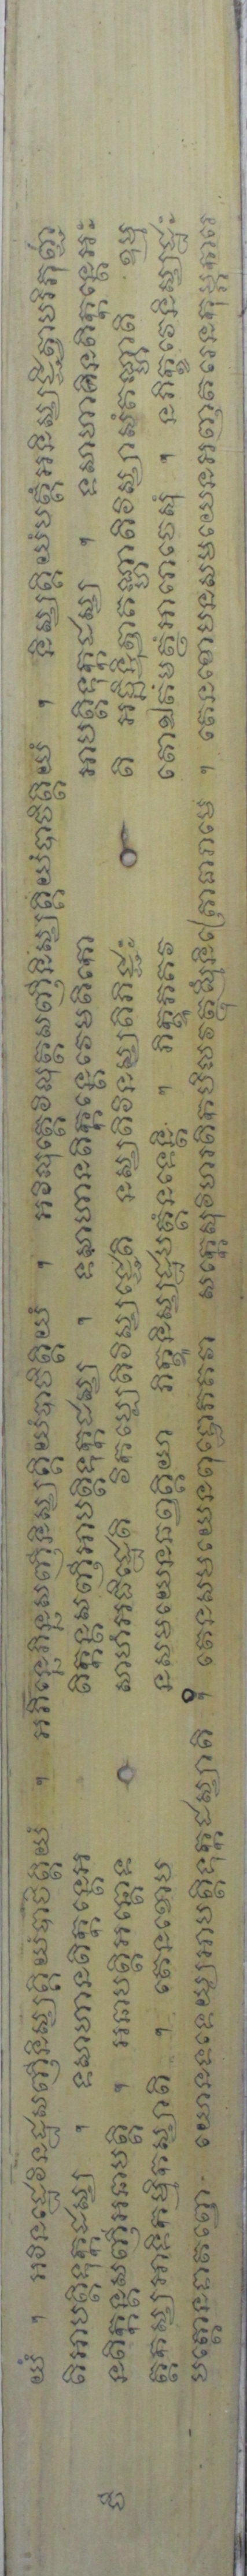 យំ ។ អវិនដ្ឋេវិនដ្ឋសញ្ញីនិស្សគ្គិយំបាចិត្តិយំ ។ អភិន្នេភិន្នសញ្ញីនិស្សគ្គិយំបាចិត្តិយំ ។ អវិលុត្តេវិលុត្តសញ្ញីនិស្សគ្គិយំបាចិត្តិយំ ។ និស្សគ្គិយំបត្តំអនិស្សជ្ជិត្វាបរិភុញ្ជ
តិអាបត្តិទុក្កដស្ស ។ ទសាហានតិក្កន្តេអ តិក្កន្តសញ្ញីអាបត្តិទុក្កដស្ស ។ ទសាហានតិក្កន្តេវេមតិកោ អាបត្តិទុក្កដស្ស ។ ទសាហានតិក្កន្តេអះ
នតិក្កន្តសញ្ញីអនាបត្តិ ។ អនាបត្តិអន្តោទ សាហំអធិដ្ឋេតិ វិកប្បេតិវិស្សជ្ជេតិ នស្សតិវិនស្សតិភិជ្ជះ តិ អច្ឆិន្ទិត្វាគណ្ហាតិវិស្សាសំគណ្ហាតិ ឧម្ម
ត្តកស្សអាទិកម្មិកស្សាតិ ។ តេនខោប នសមយេនឆព្វគ្គិយា ភិក្ខូនិស្សដ្ឋបត្តំនទេន្តិ ។ ភិក្ខូភគវ តោឯតមត្ថំអារោចេសុំ ។ នភិក្ខវេនិស្សដ្ឋះ
បត្តោនទាតព្ពោ យោនទទេយ្យអាបត្តិទុក្កដស្សាតិ ។ តេនសមយេនពុទ្ធោភគវា សក្កេសុវិហរតិកបិលវត្ថុស្មិំនិគ្រោធារាមេ ។ តេនខោបនសមយេនអញ្ញតរេនកុម្ភការេ